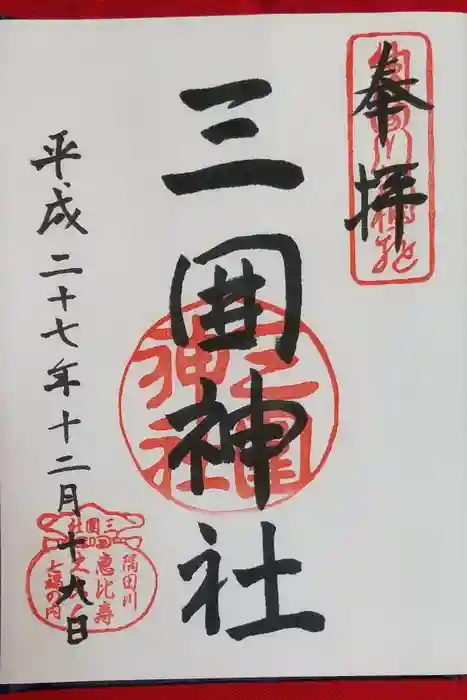 奉拝
三囲神社
三囲神社
平成二十七年十二月十九日
三囲社
隅田川
恵比寿
七福の内